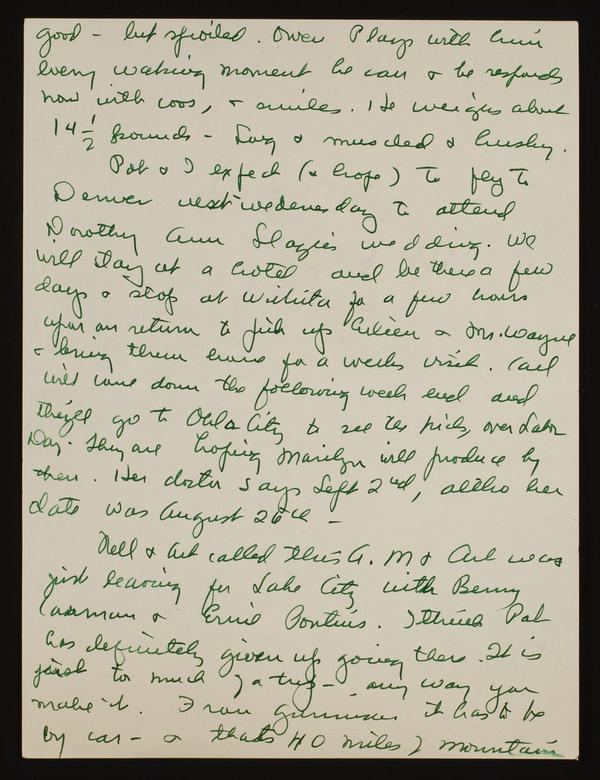 good - but spoiled. Owen Plays with him
every waking moment he can & he responds
now with coos, & smiles. He weighs about
14½ pounds - Long & muscled & husky.
Pat & I expect (& hope) to fly to
Denver next wedenesday to attend
Dorothy Ann Slagies wedding. We
will stay at a hotel and be there a few
days & stop at Wichita for a few hours
upon our return to pick up Arleen & Mr. Wayne
& bring them home for a weeks visit. Carl
will come down the following week end and
they'll go to Okla City to see the kids, over Labor
Day. They are hoping Marilyn will produce by
then. Her doctor says Sept 2nd, altho her
date was August 26th -
Nell & Art called this A.M & Art was
just leaving for Lake City with Benny
& Ernie Pontius. I think Pat
has definitely given up going there. It is
just to much of a trip - any way you
make it. From Gunnison it has to be
by car - & thats 40 miles of mountain